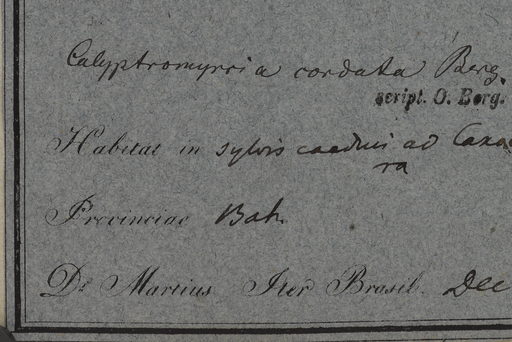 Calyptromyrcia cordata Berg.
script. O. Berg.
Habitat in sylvis caeduis ad Caxoe
ra
Provinciae Bah.
Dr. Martius Iter Brasil. Dec